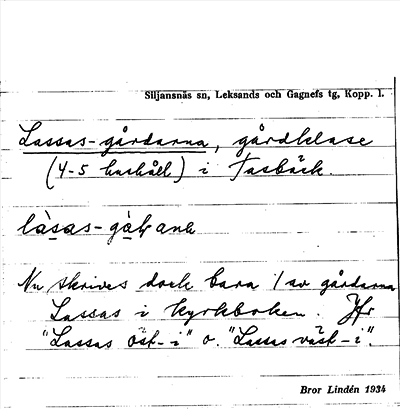 Siljansnäs sn, Leksands och Gagnefs tg, Kopp. l.
Lassas-gårdarna, gårdklase
(4-5 hushåll) i Tasbäck.
Nu skrives dock bara 1 av gårdarna
Lassas i kyrkboken. Jfr
"Lassas öst-i" o. "Lassas väst-i".
Bror Lindén 1934